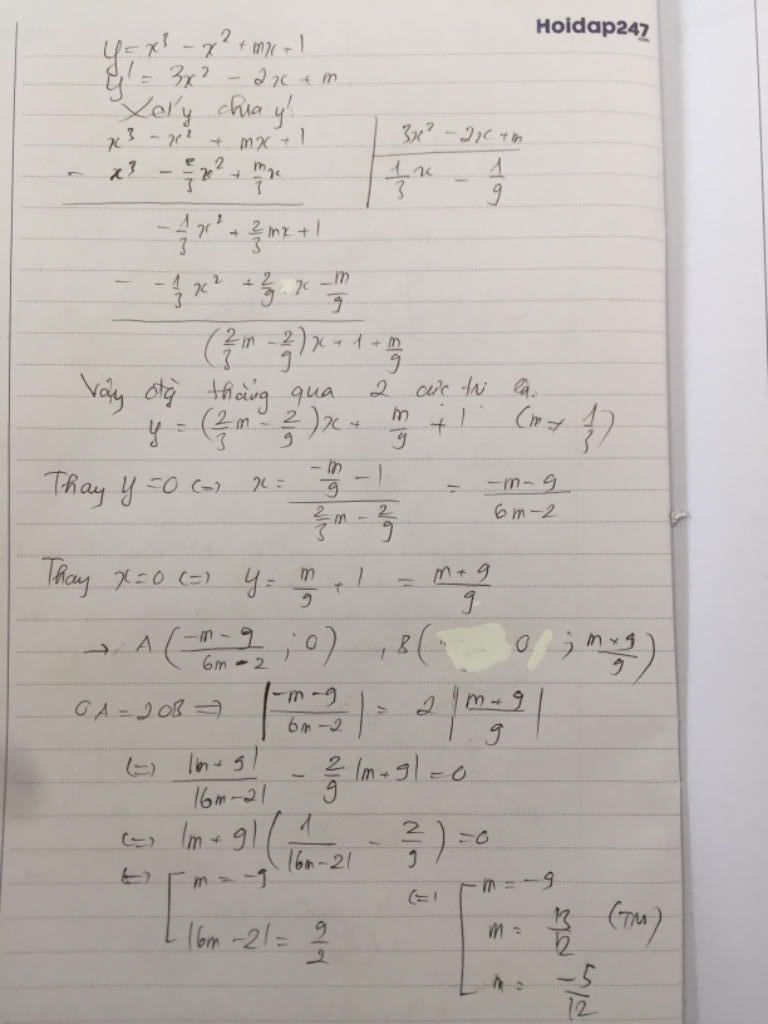 Hoidap247
y = x³ - x² + mx + 1
y' = 3x² - 2x + m
Xét y chia y'
x³ - x² + mx + 1 | 3x² - 2x + m
- x³ - 2/3 x² + m/3 x | 1/3 x - 1/9
-1/3 x² + 2/3 mx + 1
- -1/3 x² + 2/9 x - m/9
(2/3 m - 2/9)x + 1 + m/9
Vậy đtg thẳng qua 2 cực trị là
y = (2/3 m - 2/9)x + m/9 + 1 (m ≠ 1/3)
Thay y = 0 (=) x = (-m/9 - 1)/(2/3 m - 2/9) = (-m-9)/(6m-2)
Thay x = 0 (=) y = m/9 + 1 = (m+9)/9
→ A((-m-9)/(6m-2) ; 0) , B( 0 ; (m+9)/9)
OA = 2OB => |(-m-9)/(6m-2)| = 2|(m+9)/9|
(=) |m+9|/|6m-2| - 2/9 |m+9| = 0
(=) |m+9|(1/|6m-2| - 2/9) = 0
(=) [ m = -9
|6m-2| = 9/2
(=) [ m = -9
m = 13/12 (TM)
m = -5/12